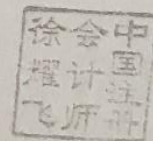 中国注册
会计师
徐耀飞